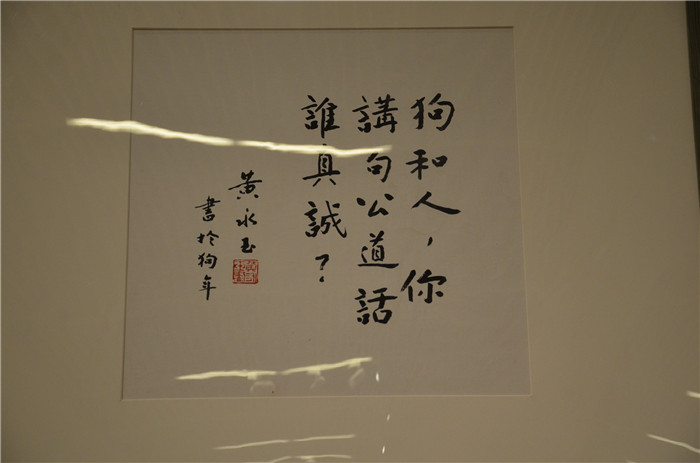 狗和人，你
講句公道話
誰真誠？
黃永玉
書於狗年